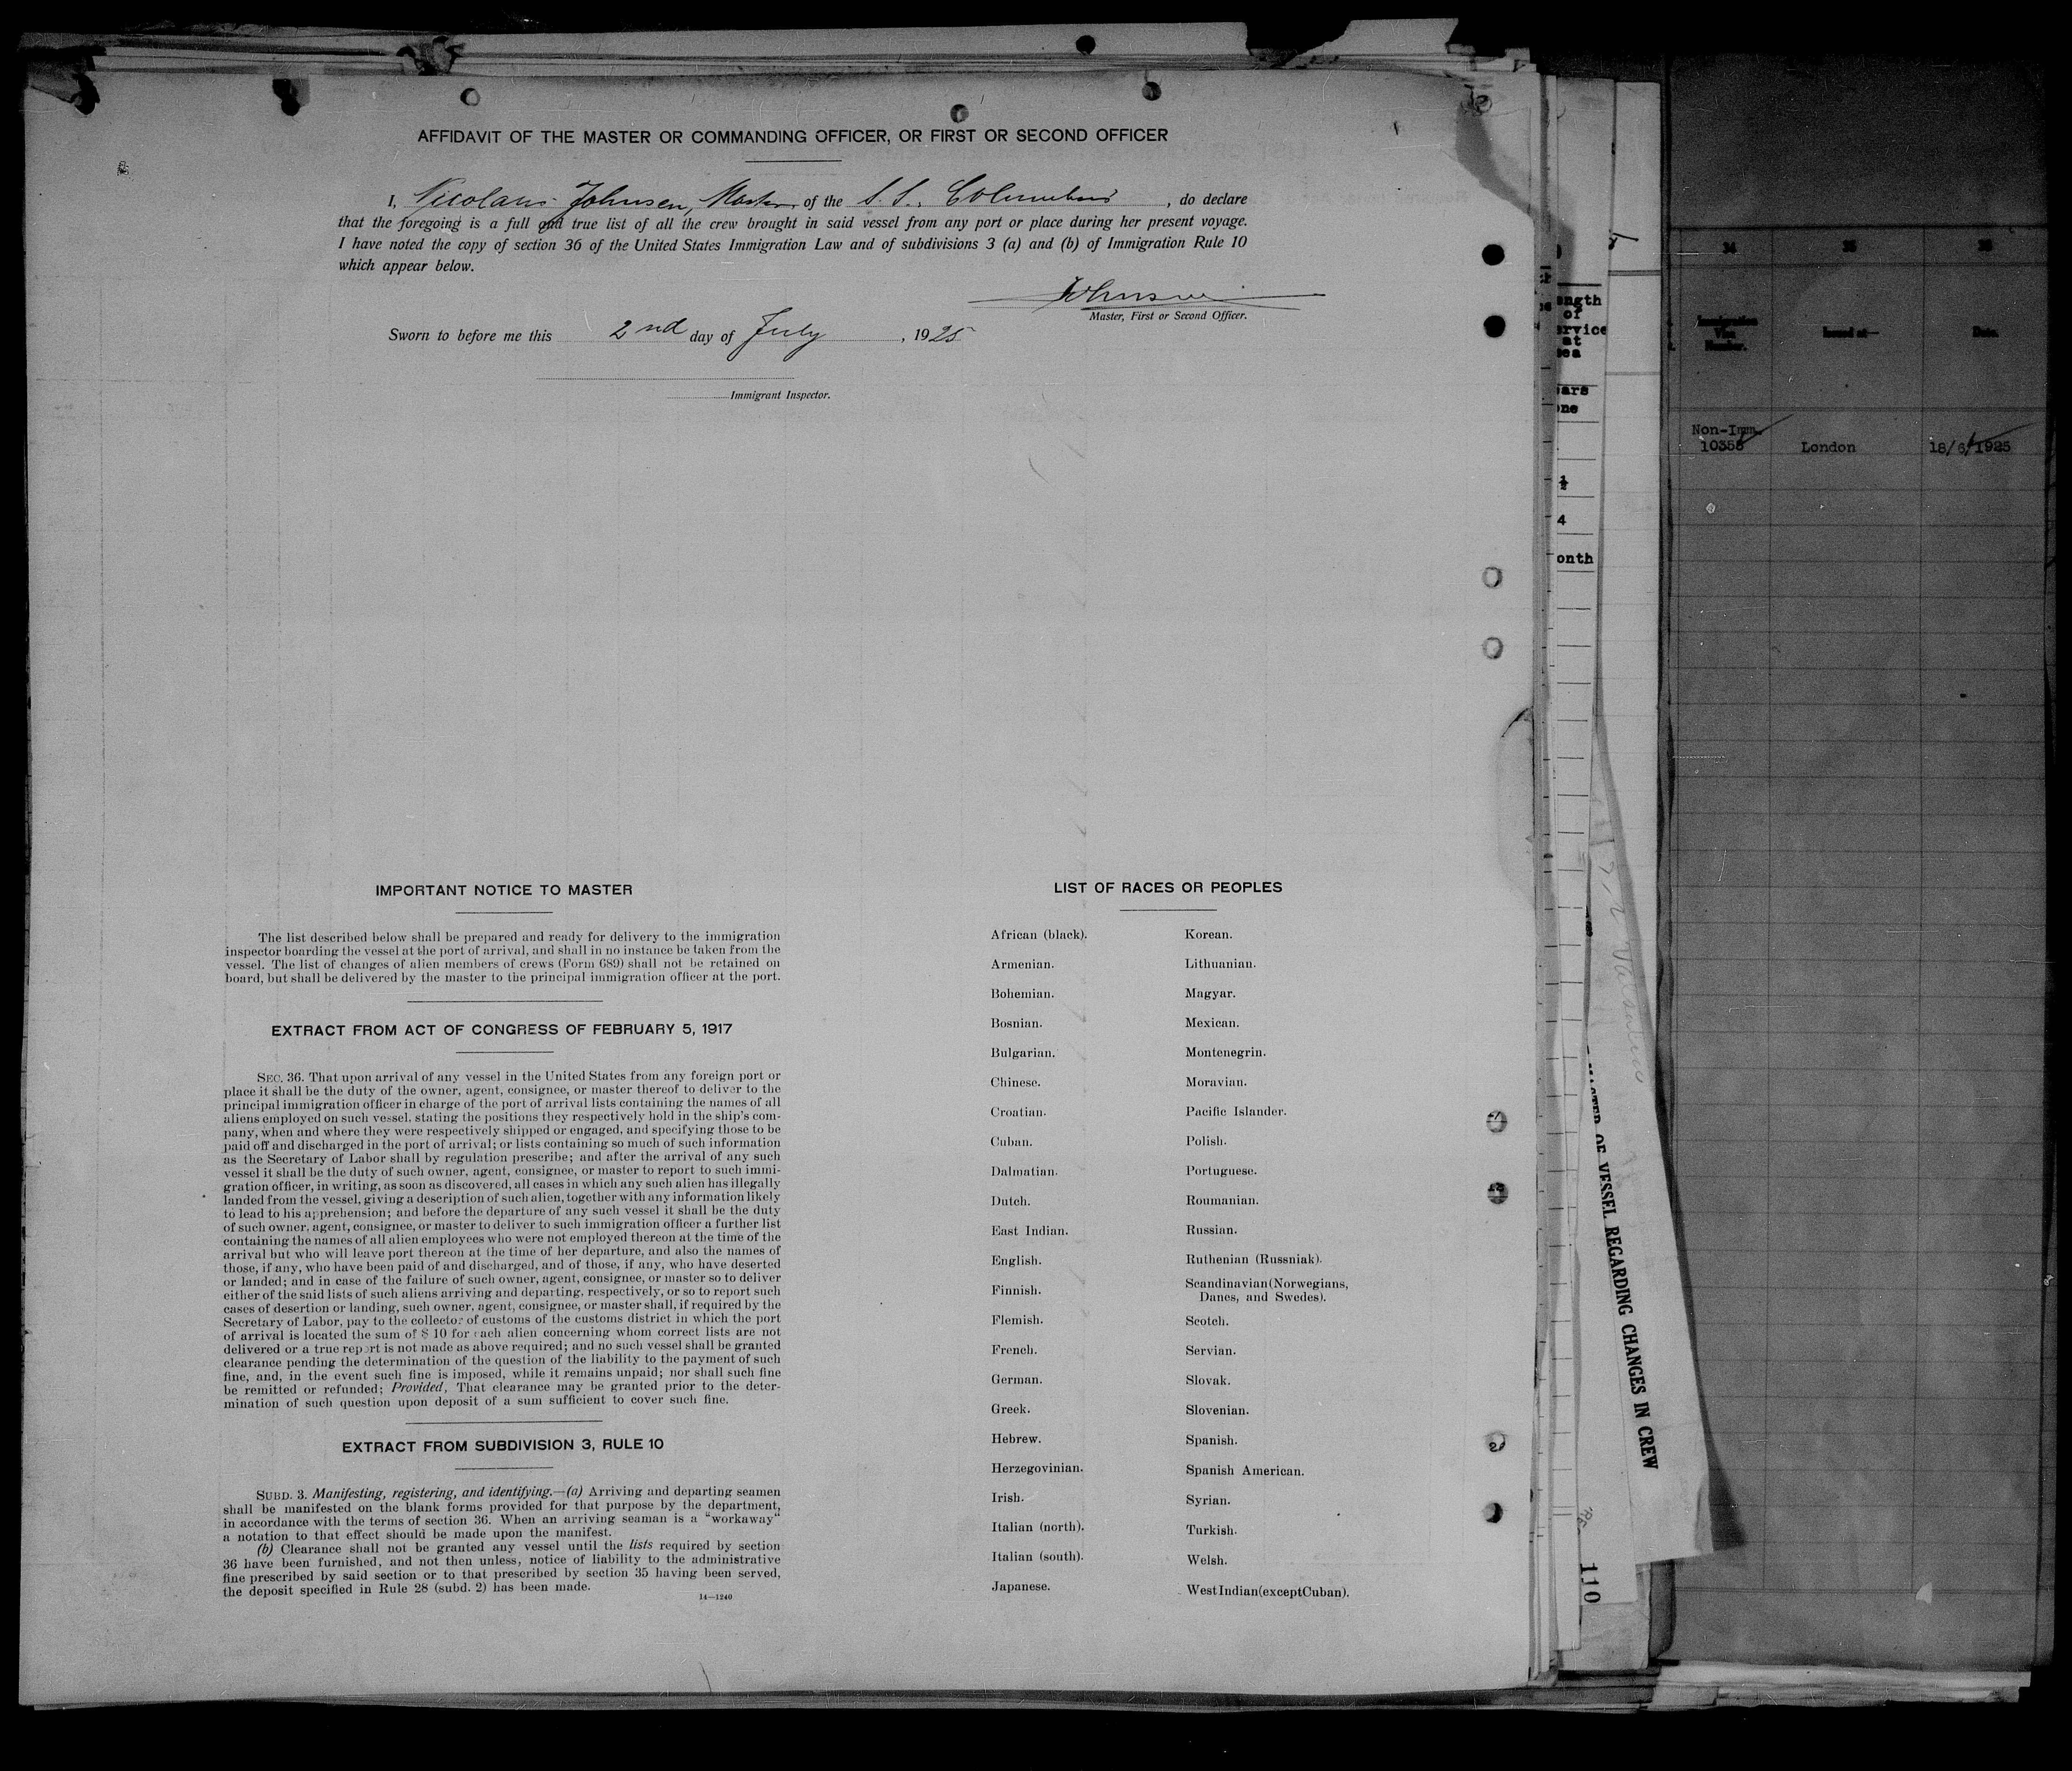 AFFIDAVIT OF THE MASTER OR COMMANDING OFFICER, OR FIRST OR SECOND OFFICER
I, Nicolaus Johnsen, Master of the S. S. Columbus, do declare
that the foregoing is a full and true list of all the crew brought in said vessel from any port or place during her present voyage.
I have noted the copy of section 36 of the United States Immigration Law and of subdivisions 3 (a) and (b) of Immigration Rule 10
which appear below.
Johnsen
Master, First or Second Officer.
Sworn to before me this 2nd day of July, 1925
Immigrant Inspector.
IMPORTANT NOTICE TO MASTER
The list described below shall be prepared and ready for delivery to the immigration
inspector boarding the vessel at the port of arrival, and shall in no instance be taken from the
vessel. The list of changes of alien members of crews (Form 689) shall not be retained on
board, but shall be delivered by the master to the principal immigration officer at the port.
EXTRACT FROM ACT OF CONGRESS OF FEBRUARY 5, 1917
SEC. 36. That upon arrival of any vessel in the United States from any foreign port or
place it shall be the duty of the owner, agent, consignee, or master thereof to deliver to the
principal immigration officer in charge of the port of arrival lists containing the names of all
aliens employed on such vessel, stating the positions they respectively hold in the ship's com-
pany, when and where they were respectively shipped or engaged, and specifying those to be
paid off and discharged in the port of arrival; or lists containing so much of such information
as the Secretary of Labor shall by regulation prescribe; and after the arrival of any such
vessel it shall be the duty of such owner, agent, consignee, or master to report to such immi-
gration officer, in writing, as soon as discovered, all cases in which any such alien has illegally
landed from the vessel, giving a description of such alien, together with any information likely
to lead to his apprehension; and before the departure of any such vessel it shall be the duty
of such owner, agent, consignee, or master to deliver to such immigration officer a further list
containing the names of all alien employees who were not employed thereon at the time of the
arrival but who will leave port thereon at the time of her departure, and also the names of
those, if any, who have been paid of and discharged, and of those, if any, who have deserted
or landed; and in case of the failure of such owner, agent, consignee, or master so to deliver
either of the said lists of such aliens arriving and departing, respectively, or so to report such
cases of desertion or landing, such owner, agent, consignee, or master shall, if required by the
Secretary of Labor, pay to the collector of customs of the customs district in which the port
of arrival is located the sum of $ 10 for each alien concerning whom correct lists are not
delivered or a true report is not made as above required; and no such vessel shall be granted
clearance pending the determination of the question of the liability to the payment of such
fine, and, in the event such fine is imposed, while it remains unpaid; nor shall such fine
be remitted or refunded; Provided, That clearance may be granted prior to the deter-
mination of such question upon deposit of a sum sufficient to cover such fine.
EXTRACT FROM SUBDIVISION 3, RULE 10
SUBD. 3. Manifesting, registering, and identifying.—(a) Arriving and departing seamen
shall be manifested on the blank forms provided for that purpose by the department,
in accordance with the terms of section 36. When an arriving seaman is a "workaway"
a notation to that effect should be made upon the manifest.
(b) Clearance shall not be granted any vessel until the lists required by section
36 have been furnished, and not then unless, notice of liability to the administrative
fine prescribed by said section or to that prescribed by section 35 having been served,
the deposit specified in Rule 28 (subd. 2) has been made.
14—1240
LIST OF RACES OR PEOPLES
African (black).
Armenian.
Bohemian.
Bosnian.
Bulgarian.
Chinese.
Croatian.
Cuban.
Dalmatian.
Dutch.
East Indian.
English.
Finnish.
Flemish.
French.
German.
Greek.
Hebrew.
Herzegovinian.
Irish.
Italian (north).
Italian (south).
Japanese.
Korean.
Lithuanian.
Magyar.
Mexican.
Montenegrin.
Moravian.
Pacific Islander.
Polish.
Portuguese.
Roumanian.
Russian.
Ruthenian (Russniak).
Scandinavian (Norwegians,
Danes, and Swedes).
Scotch.
Servian.
Slovak.
Slovenian.
Spanish.
Spanish American.
Syrian.
Turkish.
Welsh.
West Indian (except Cuban).
ength
of
ervice
at
sea
ears
one
½
4
onth
OF VESSEL REGARDING CHANGES IN CREW
110
34
35
36
Immigration
Visa
Number.
Issued at—
Date.
Non-Imm.
10358
London
18/6/1925